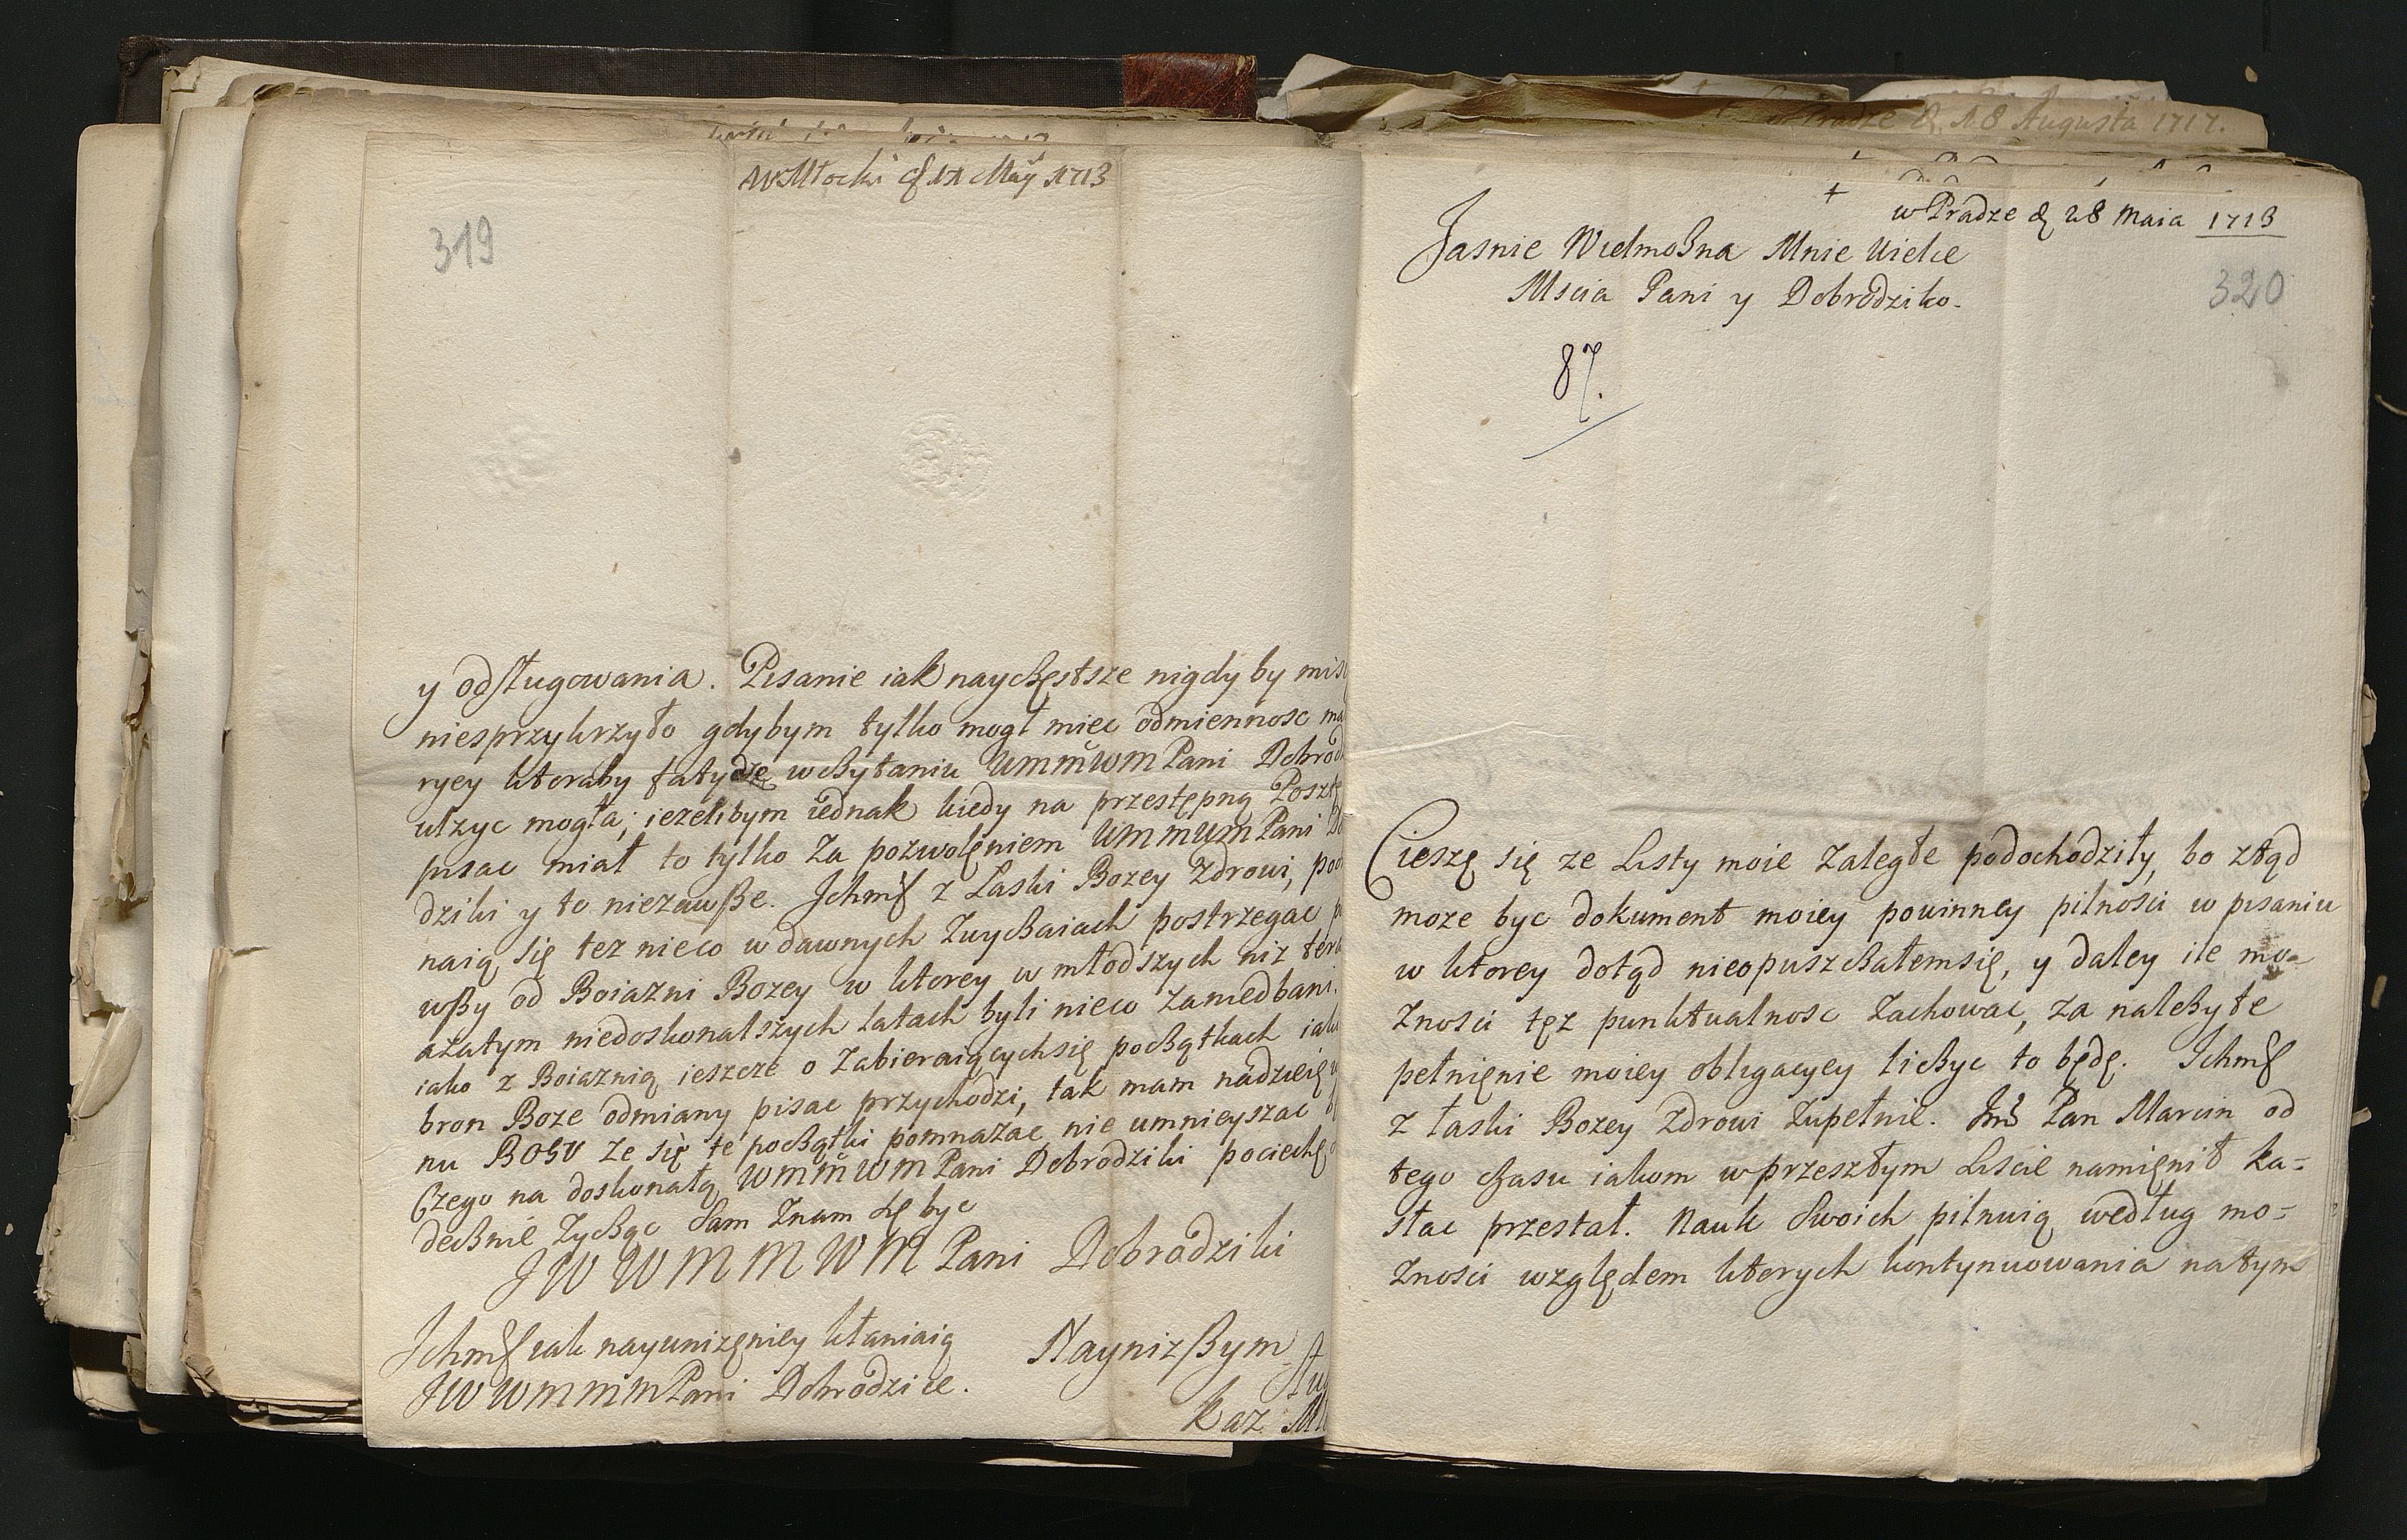 W Młocki d 11 Maij 1713
319
y odsługowania. Pisanie iak nayczęstsze nigdy by mi
niesprzykrzyło gdybym tylko mogł miec odmiennosc ma
ryey ktoraby fatydzę wczytaniu WMMWM Pani Dobrod
ulzyc mogła; iezelibym iednak kiedy na przestępną Poszt
pisac miał to tylko za pozwolęniem WMMWM Pani Do
dziki y to niezawße. Ichmć z Laski Bozey zdrowi, poc
naią się tez nieco w dawnych zwyczaiach postrzegac p
wßy od Boiazni Bozey w ktorey w młodszych niz tera
azatym niedoskonalszych latach byli nieco zaniedbani.
iako z Boiaznią ieszcze o zabieraiącychsię początkach iak
bron Boze odmiany pisac przychodzi, tak mam nadzieię w
nu BOGU ze się te początki pomnazac nie umnieyszac b
Czego na doskonałą WMMWM Pani Dobrodziki pociechę
decznie zycząc sam znam się byc
JWWMMWM Pani Dobrodziki
Ichmć iak nayunizęniey kłaniaią
JWWMMM Pani Dobrodzice.
Nayniższym
Kaz
w Pradze d 18 Augusta 1717.
+
w Pradze d 28 Maia 1713
Jasnie Wielmożna Mnie Wielce
Mscia Pani y Dobrodziko.
320
87.
Cieszę się ze Listy moie zaległe podochodziły, bo ztąd
moze byc dokument moiey powinney pilności w pisaniu
w ktorey dotąd nieopuszczałemsię, y daley ile mo=
zności tęz punktualnosc zachowac, za należyte
pełnięnie moiey obligacyey liczyc to będę. Ichmć
z łaski Bozey zdrowi zupełnie. Jmć Pan Marcin od
tego czasu iakom w przeszłym Liscie namięnił ka=
słac przestał. Nauk swoich pilnuią według mo=
zności względem ktorych kontynuowania natym